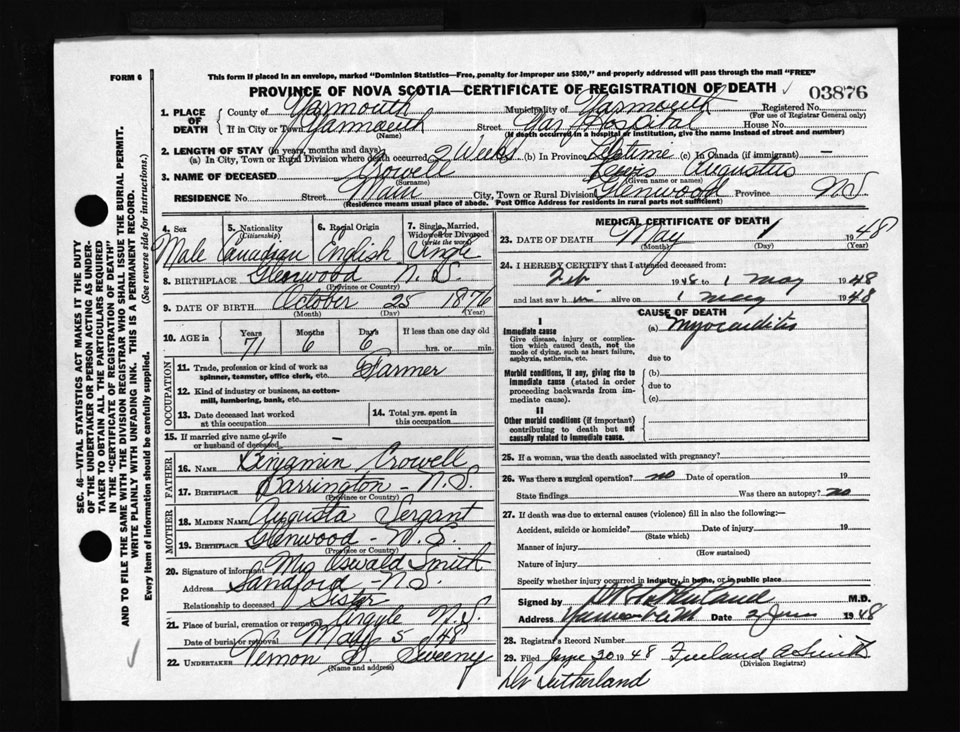 FORM 6
This form if placed in an envelope, marked "Dominion Statistics—Free, penalty for improper use $300," and properly addressed will pass through the mail "FREE"
PROVINCE OF NOVA SCOTIA—CERTIFICATE OF REGISTRATION OF DEATH
03876
1. PLACE OF DEATH
County of Yarmouth Municipality of Yarmouth Registered No.
(For use of Registrar General only)
If in City or Town Yarmouth Street Yar, Hospital House No.
(Name) (If death occurred in a hospital or institution, give the name instead of street and number)
2. LENGTH OF STAY (in years, months and days)
(a) In City, Town or Rural Division where death occurred 2 Weeks (b) In Province Lifetime (c) In Canada (if immigrant) —
3. NAME OF DECEASED Crowell Lewis Augustus
(Surname) (Given name or names)
RESIDENCE No. Street Main City, Town or Rural Division Glenwood Province N.S.
(Residence means usual place of abode. Post Office Address for residents in rural parts not sufficient)
4. Sex Male
5. Nationality (Citizenship) Canadian
6. Racial Origin English
7. Single, Married, Widowed or Divorced (write the word) Single
8. BIRTHPLACE Glenwood N.S.
(Province or Country)
9. DATE OF BIRTH October 25 1876
(Month) (Day) (Year)
10. AGE in Years 71 Months 6 Days 6 If less than one day old hrs. or min.
OCCUPATION
11. Trade, profession or kind of work as spinner, teamster, office clerk, etc. Farmer
12. Kind of industry or business, as cotton-mill, lumbering, bank, etc.
13. Date deceased last worked at this occupation
14. Total yrs. spent in this occupation
15. If married give name of wife or husband of deceased —
FATHER
16. NAME Bingmin Crowell
17. BIRTHPLACE Barrington - N.S.
(Province or Country)
MOTHER
18. MAIDEN NAME Augusta Sergant
19. BIRTHPLACE Glenwood - N.S.
(Province or Country)
20. Signature of informant Mrs Oswald Smith
Address Sandford - N.S.
Relationship to deceased Sister
21. Place of burial, cremation or removal Argyle N.S.
Date of burial or removal May 5 1948
22. UNDERTAKER Vernon L. Sweeny
(Name and address)
MEDICAL CERTIFICATE OF DEATH
23. DATE OF DEATH May 1 1948
(Month) (Day) (Year)
24. I HEREBY CERTIFY that I attended deceased from:
Feb 1948 to 1 May 1948
and last saw him alive on 1 May 1948
CAUSE OF DEATH
I
Immediate cause
Give disease, injury or complication which caused death, not the mode of dying, such as heart failure, asphyxia, asthenia, etc.
(a) Myocarditis
due to
Morbid conditions, if any, giving rise to immediate cause (stated in order proceeding backwards from immediate cause).
(b)
due to
(c)
II
Other morbid conditions (if important) contributing to death but not causally related to immediate cause.
25. If a woman, was the death associated with pregnancy?
26. Was there a surgical operation? no Date of operation 19
State findings Was there an autopsy? no
27. If death was due to external causes (violence) fill in also the following:—
Accident, suicide or homicide? Date of injury 19
(State which)
Manner of injury
(How sustained)
Nature of injury
Specify whether injury occurred in industry, in home, or in public place
Signed by M.D.
Address Yarmouth Date 2 June 1948
28. Registrar's Record Number
29. Filed June 30 1948 Freeland A Smith
(Division Registrar)
Dr Sutherland
SEC. 46—VITAL STATISTICS ACT MAKES IT THE DUTY
OF THE UNDERTAKER OR PERSON ACTING AS UNDER-
TAKER TO OBTAIN ALL THE PARTICULARS REQUIRED
IN THE "CERTIFICATE OF REGISTRATION OF DEATH"
AND TO FILE THE SAME WITH THE DIVISION REGISTRAR WHO SHALL ISSUE THE BURIAL PERMIT.
WRITE PLAINLY WITH UNFADING INK. THIS IS A PERMANENT RECORD.
Every item of information should be carefully supplied. (See reverse side for instructions.)